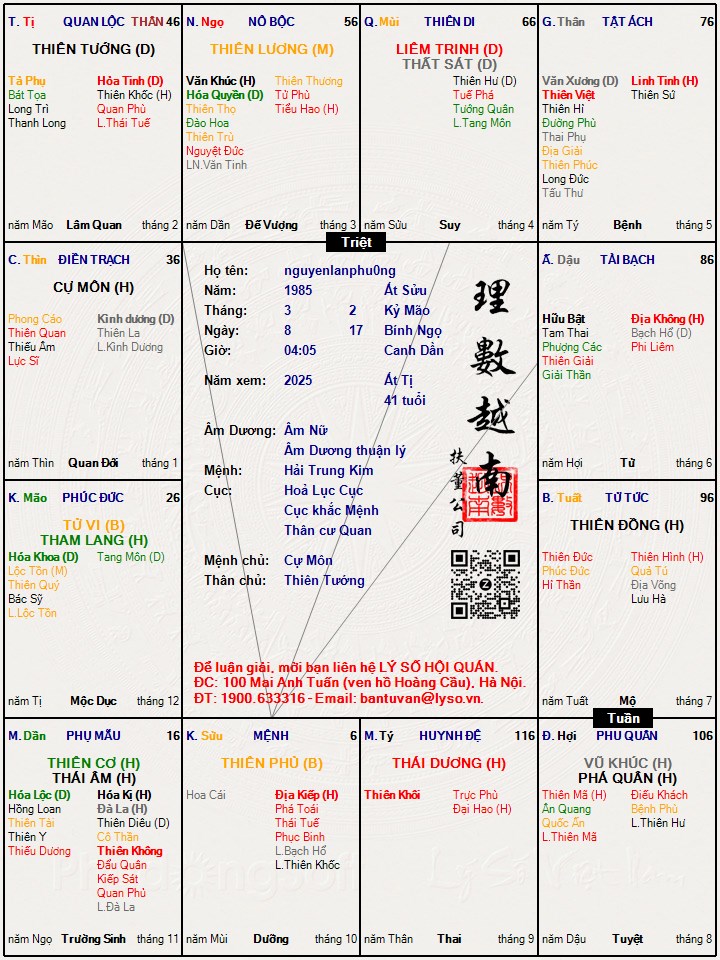 T. Tị QUAN LỘC THÂN 46
THIÊN TƯỚNG (D)
Tả Phụ
Bát Tọa
Long Trì
Thanh Long
Hỏa Tinh (D)
Thiên Khốc (H)
Quan Phủ
L.Thái Tuế
năm Mão Lâm Quan tháng 2
N. Ngọ NÔ BỘC 56
THIÊN LƯƠNG (M)
Văn Khúc (H)
Hóa Quyền (D)
Thiên Thọ
Đào Hoa
Thiên Trù
Nguyệt Đức
LN.Văn Tinh
Thiên Thương
Tử Phù
Tiểu Hao (H)
năm Dần Đế Vượng tháng 3
Q. Mùi THIÊN DI 66
LIÊM TRINH (D)
THẤT SÁT (D)
Thiên Hư (D)
Tuế Phá
Tướng Quân
L.Tang Môn
năm Sửu Suy tháng 4
G. Thân TẬT ÁCH 76
Văn Xương (D)
Thiên Việt
Thiên Hỉ
Đường Phù
Thai Phụ
Địa Giải
Thiên Phúc
Long Đức
Tấu Thư
Linh Tinh (H)
Thiên Sứ
năm Tý Bệnh tháng 5
Triệt
C. Thìn ĐIỀN TRẠCH 36
CỰ MÔN (H)
Phong Cáo
Thiên Quan
Thiếu Âm
Lực Sĩ
Kình dương (D)
Thiên La
L.Kình Dương
năm Thìn Quan Đới tháng 1
Họ tên: nguyenlanphu0ng
Năm: 1985 Ất Sửu
Tháng: 3 2 Kỷ Mão
Ngày: 8 17 Bính Ngọ
Giờ: 04:05 Canh Dần
Năm xem: 2025 Ất Tị
41 tuổi
Âm Dương: Âm Nữ
Âm Dương thuận lý
Mệnh: Hải Trung Kim
Cục: Hoả Lục Cục
Cục khắc Mệnh
Thân cư Quan
Mệnh chủ: Cự Môn
Thân chủ: Thiên Tướng
理數越南
扶董公司
Để luận giải, mời bạn liên hệ LÝ SỐ HỘI QUÁN.
ĐC: 100 Mai Anh Tuấn (ven hồ Hoàng Cầu), Hà Nội.
ĐT: 1900.633316 - Email: bantuvan@lyso.vn.
Ấ. Dậu TÀI BẠCH 86
Hữu Bật
Tam Thai
Phượng Các
Thiên Giải
Giải Thần
Địa Không (H)
Bạch Hổ (D)
Phi Liêm
năm Hợi Tử tháng 6
K. Mão PHÚC ĐỨC 26
TỬ VI (B)
THAM LANG (H)
Hóa Khoa (D)
Lộc Tồn (M)
Thiên Quý
Bác Sỹ
L.Lộc Tồn
Tang Môn (D)
năm Tị Mộc Dục tháng 12
B. Tuất TỬ TỨC 96
THIÊN ĐỒNG (H)
Thiên Đức
Phúc Đức
Hỉ Thần
Thiên Hình (H)
Quả Tú
Địa Võng
Lưu Hà
năm Tuất Mộ tháng 7
Tuần
M. Dần PHỤ MẪU 16
THIÊN CƠ (H)
THÁI ÂM (H)
Hóa Lộc (D)
Hồng Loan
Thiên Tài
Thiên Y
Thiếu Dương
Hóa Kị (H)
Đà La (H)
Thiên Diêu (D)
Cô Thần
Thiên Không
Đẩu Quân
Kiếp Sát
Quan Phủ
L.Đà La
năm Ngọ Trường Sinh tháng 11
K. Sửu MỆNH 6
THIÊN PHỦ (B)
Hoa Cái
Địa Kiếp (H)
Phá Toái
Thái Tuế
Phục Binh
L.Bạch Hổ
L.Thiên Khốc
năm Mùi Dưỡng tháng 10
M. Tý HUYNH ĐỆ 116
THÁI DƯƠNG (H)
Thiên Khôi
Trực Phù
Đại Hao (H)
năm Thân Thai tháng 9
Đ. Hợi PHU QUÂN 106
VŨ KHÚC (H)
PHÁ QUÂN (H)
Thiên Mã (H)
Ân Quang
Quốc Ấn
L.Thiên Mã
Điếu Khách
Bệnh Phù
L.Thiên Hư
năm Dậu Tuyệt tháng 8